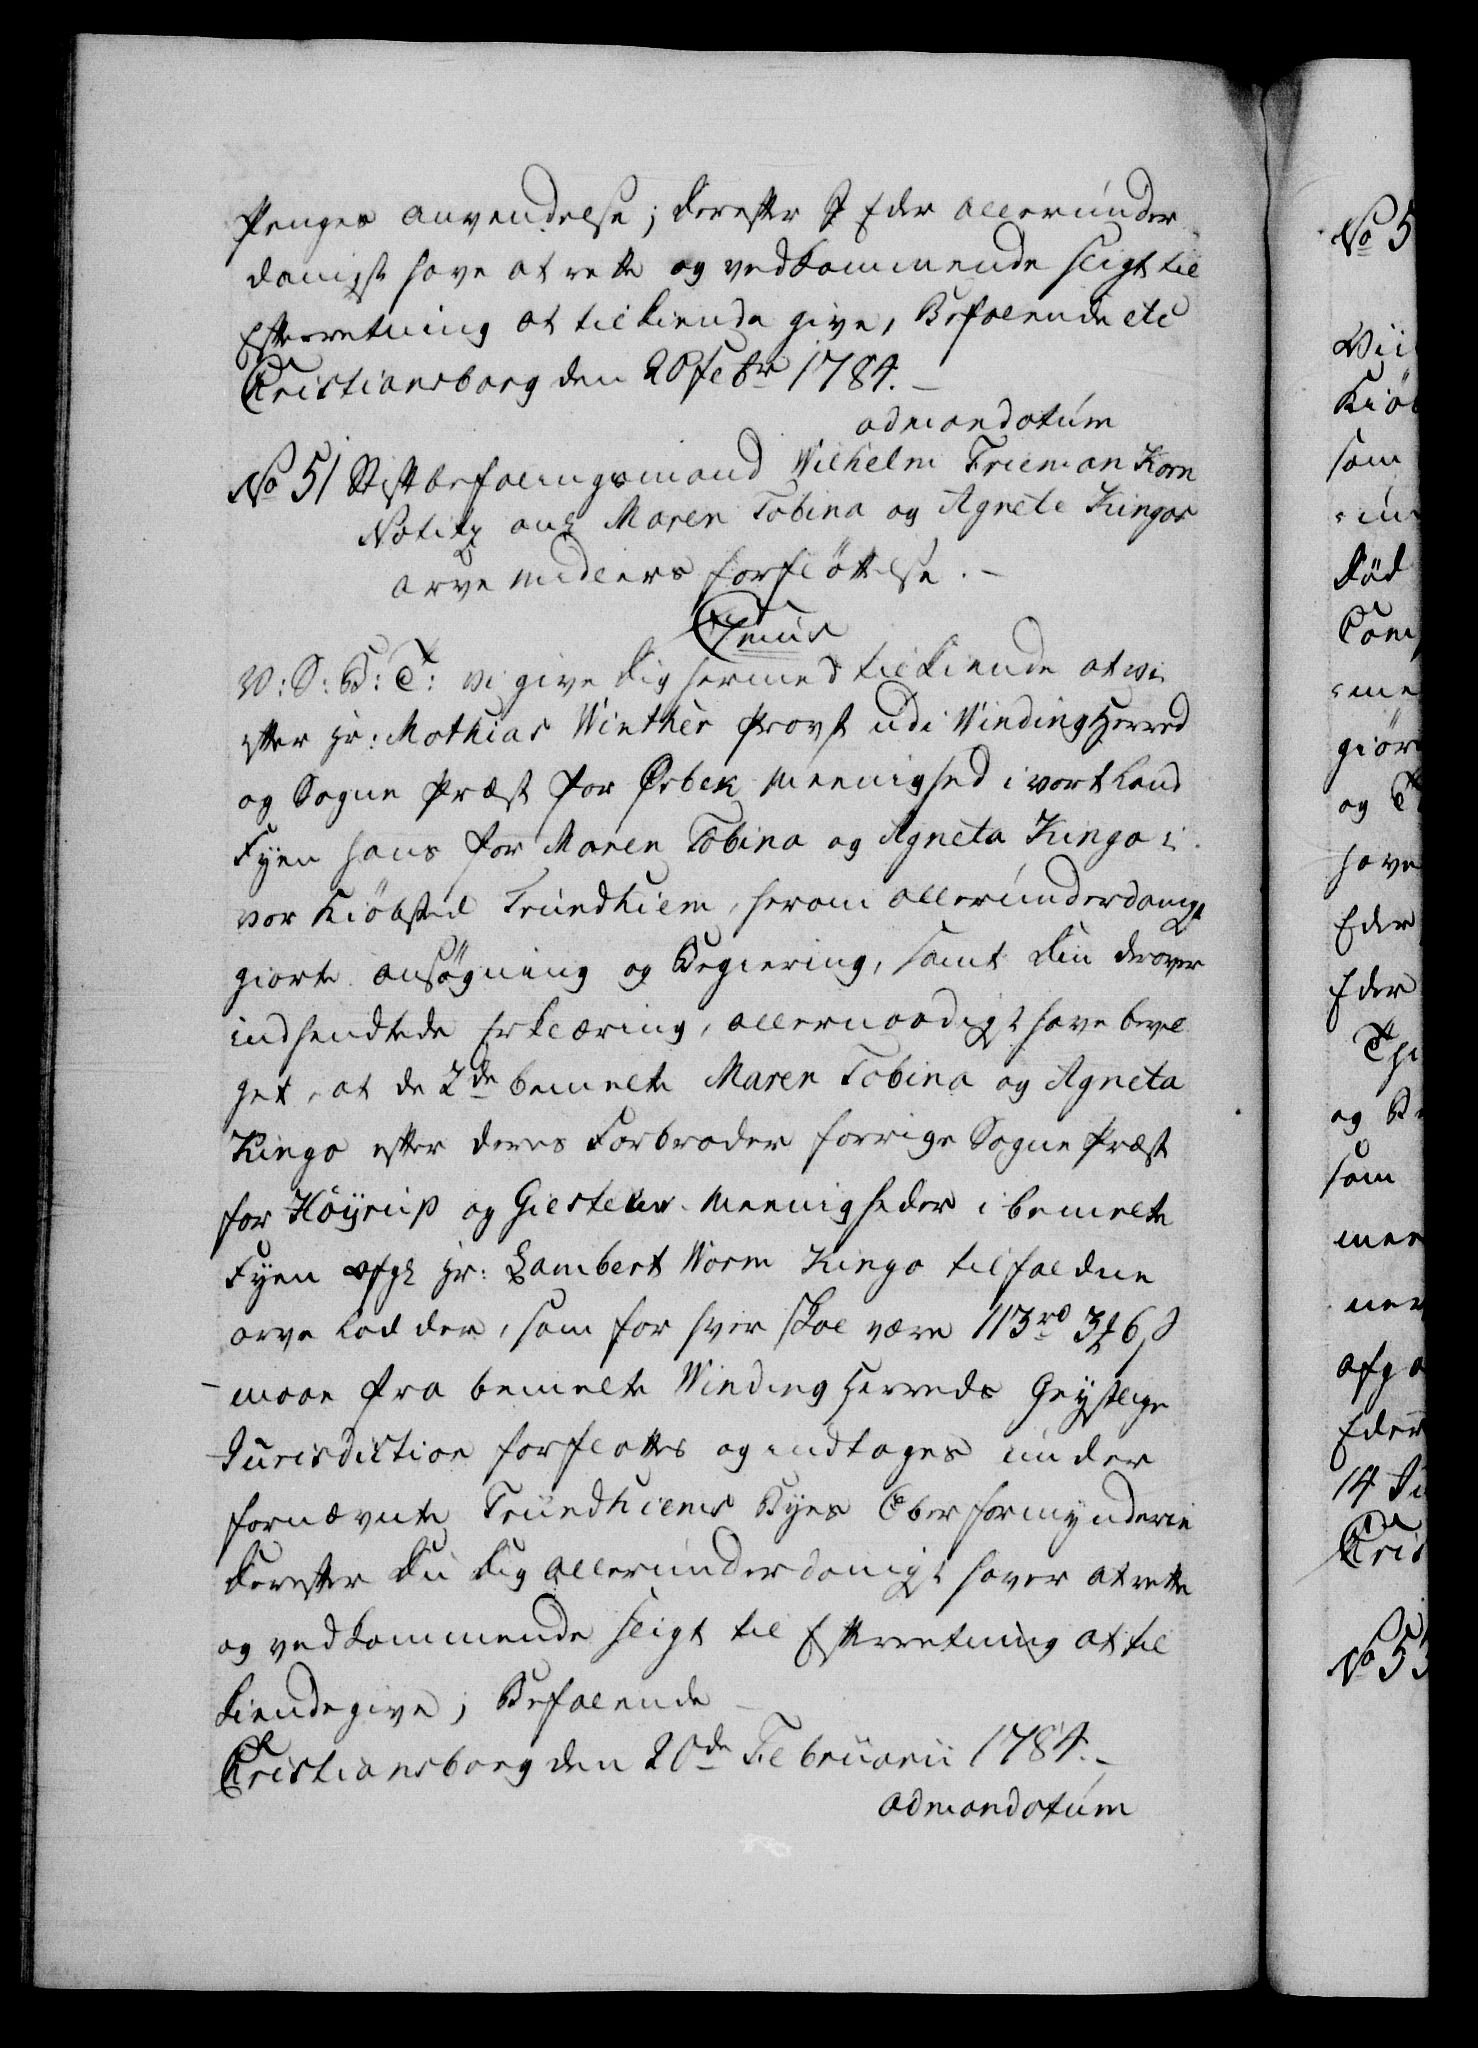 Penges anvendelse; derefter I Eder allerunder
danigst have at rette og vedkommende sligt til
Efterretning at tilkiende give, Befalende etc
Christiansborg den 20 Febr 1784. –
admandatum
No 51 Stiftbefalingsmand Wilhelm Frieman Korn
Notitz ang Maren Tobina og Agnete Kingos
arve midlers forflöttelse. –
C 7mus
V: S: G: T: vi give dig hermed tilkiende at wi
efter Hr: Mathias Winther Provst udi Winding Herred
og Sogne Præst for Ørbek Meenighed i vort Land
Fyen hans for Maren Tobina og Agneta Kingo i
vor Kiöbsted Trundhiem, herom allerunderdanigst
giorte ansøgning og Begiering, samt din derover
indsendte Erklæring, allernaadigst have bevil
get, at de 2de bemelte Maren Tobina og Agneta
Kingo efter deres Farbroder forrige Sogne Præst
for Höyrup og Giestelev Meenigheder i bemelte
Fyen afgl Hr: Lambert Worm Kingo tilfaldne
arve Lodder, som for hver skal være 113 rd 3 ꝶ 6 ß
maae fra bemelte Winding Herreds Geystlige
Jurisdiction forflottes og indtages under
fornævnte Trundhiems Byes Oberformynderie
derefter du dig allerunderdanigst haver at rette
og vedkommende sligt til Efterretning at til
kiendegive; Befalende –
Christiansborg den 20de Februarii 1784. –
admandatum
No 5
Kiöb
som
död
Com
=me
giör
og
have
Eder
Eder
og
som
mee
ner
afga
Eder
14
Chris
No 53